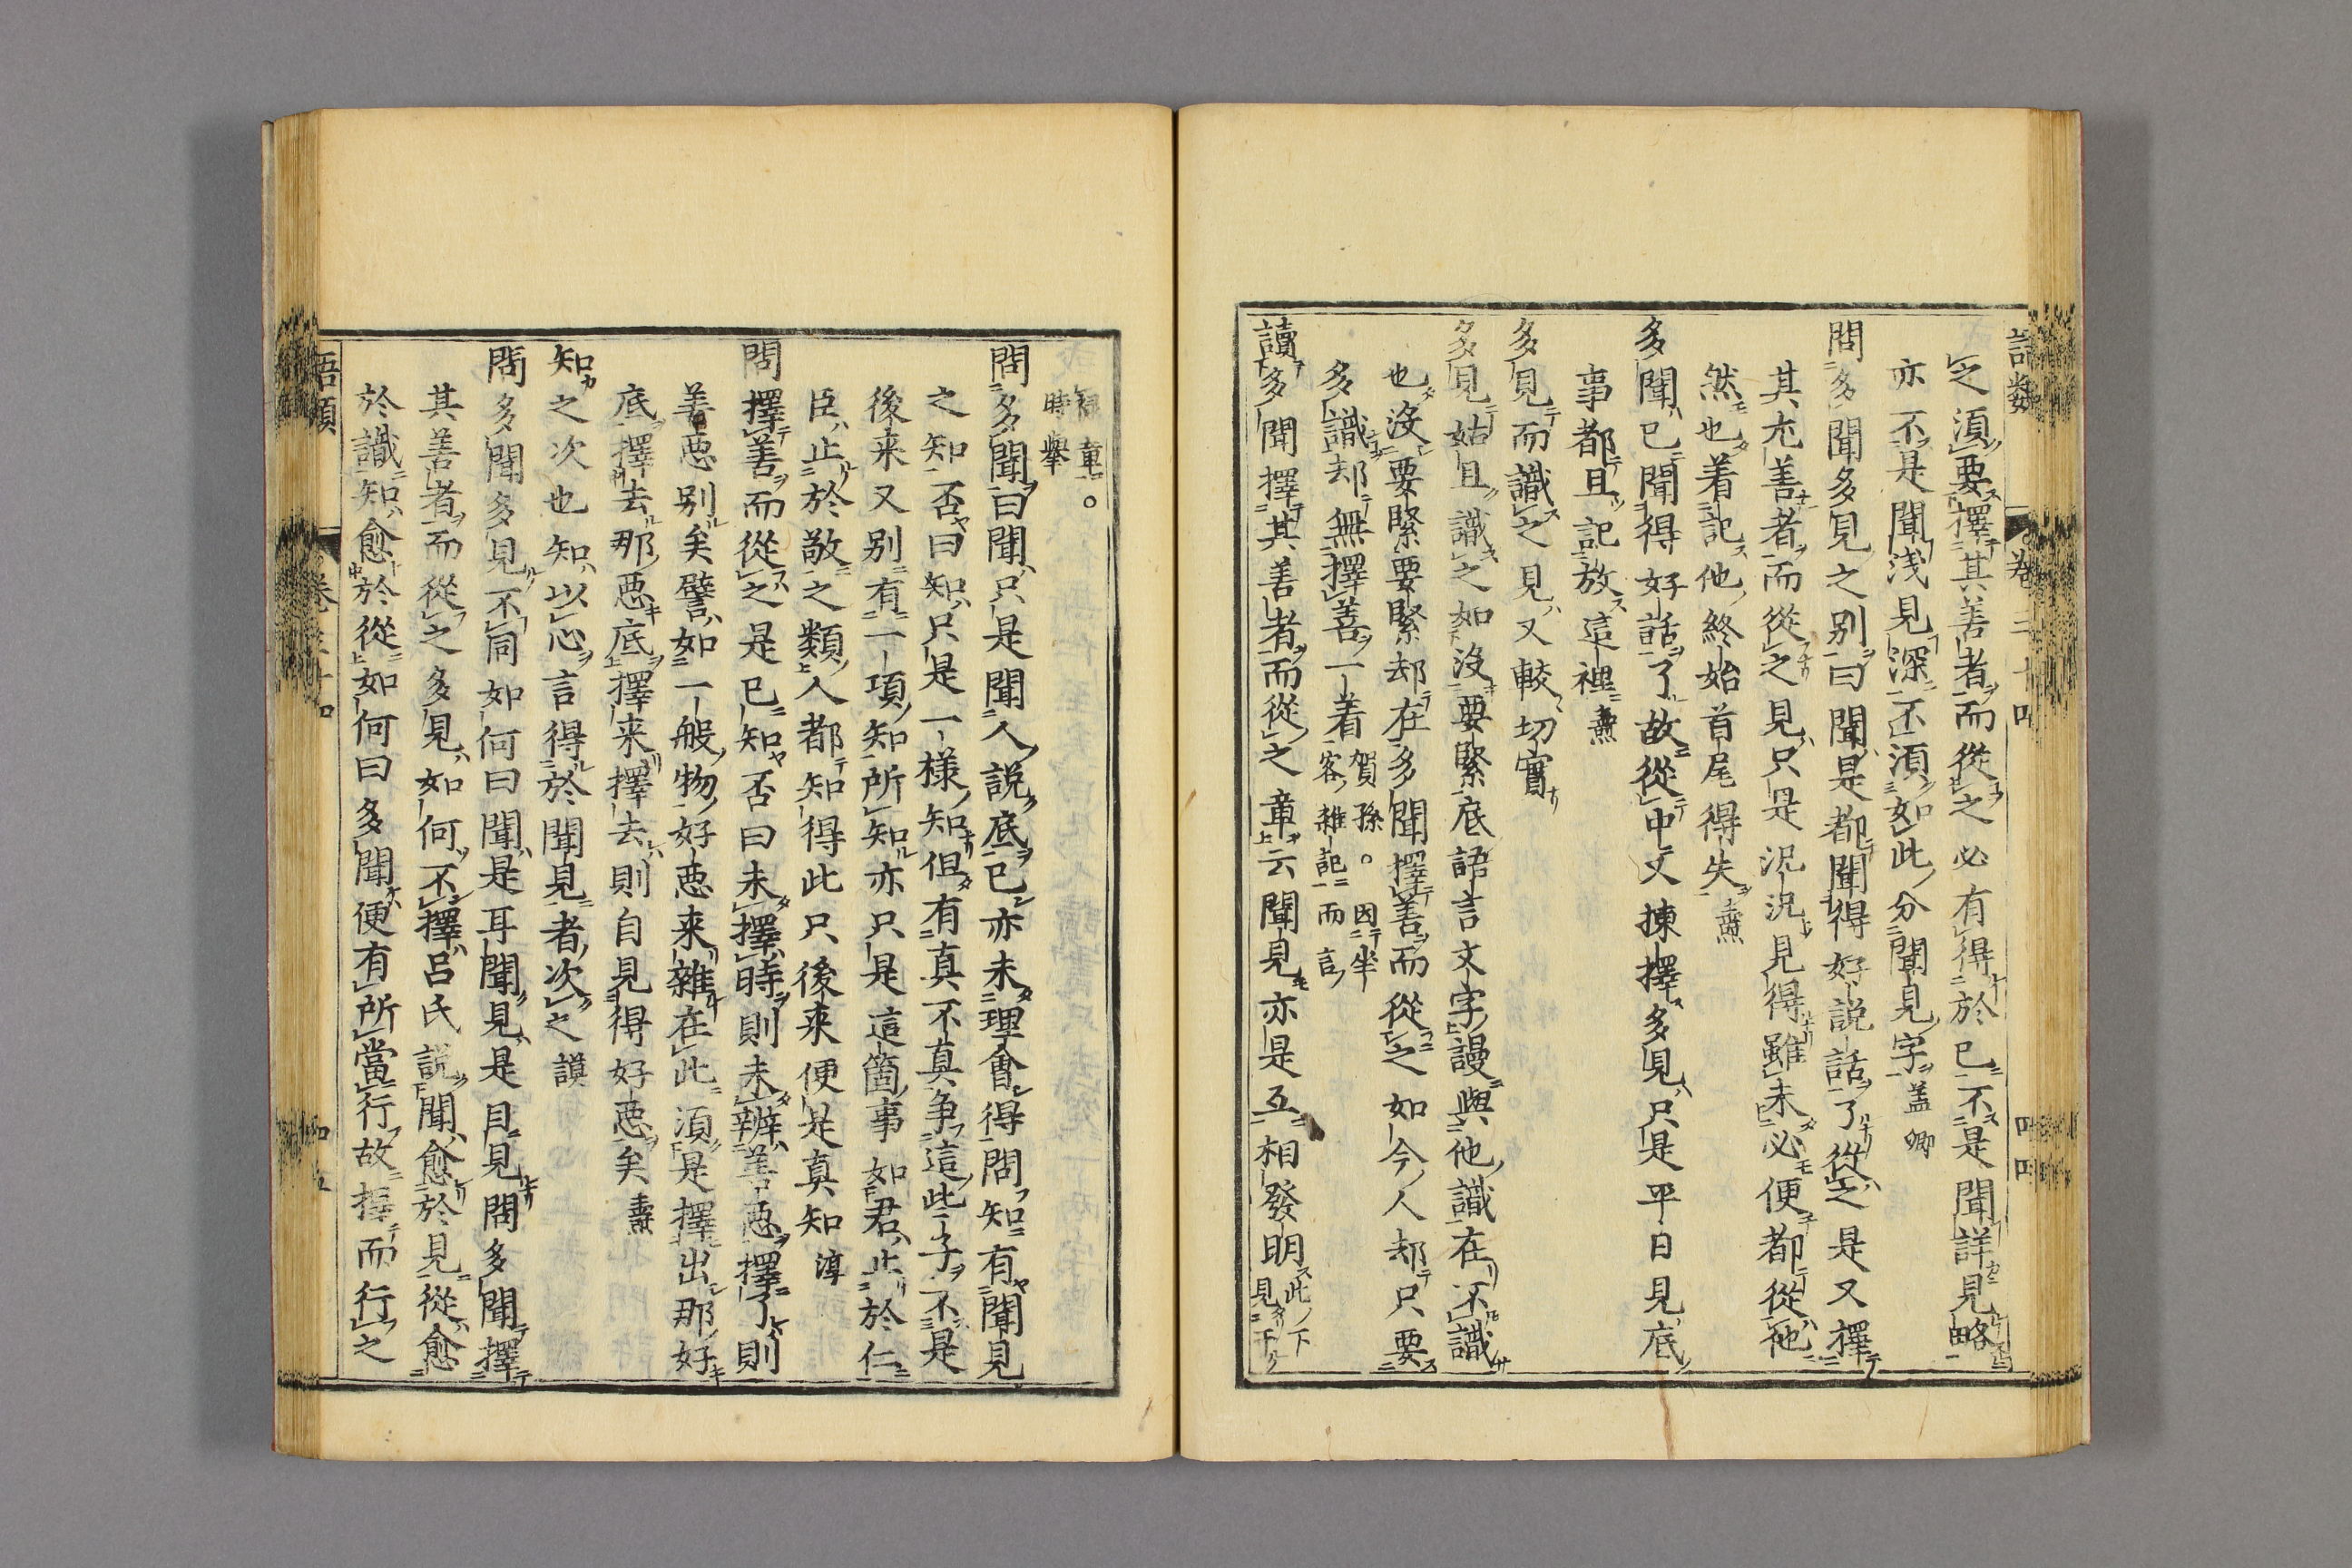 語類 卷三十四 四四
之須要擇其善者而從之必有得於己不是聞詳見略
亦不是聞浅見深不須如此分聞見字 盖卿
問多聞多見之别曰聞是都聞得好説話了從之是又擇
其尤善者而從之見只是汎汎見得雖未必便都從他
然也着記他終始首尾得失 燾
多聞已聞得好話了故從中又揀擇多見只是平日見底
事都且記放這裡 燾
多見而識之見又較切實
多見姑且識之如沒要緊底語言文字謾與他識在不識
也沒要緊要緊却在多聞擇善而從之如今人却只要
多識却無擇善一着 賀孫。因坐
客雜記而言
讀多聞擇其善者而從之章云聞見亦是互相發明 此下
見干
章。
時舉
問多聞曰聞只是聞人説底已亦未理會得問知有聞見
之知否曰知只是一樣知但有真不真争這些子不是
後来又别有一項知所知亦只是這箇事如君止於仁
臣止於敬之類人都知得此只後来便是真知 淳
問擇善而從之是已知否曰未擇時則未辨善惡擇了則
善惡别矣譬如一般物好惡来雜在此須是擇出那好
底擇去那惡底擇来擇去則自見得好惡矣 燾
知之次也知以心言得於聞見者次之 謨
問多聞多見不同如何曰聞是耳聞見是目見問多聞擇
其善者而從之多見如何不擇呂氏説聞愈於見從愈
於識知愈於從如何曰多聞便有所當行故擇而行之
語類 卷三十四